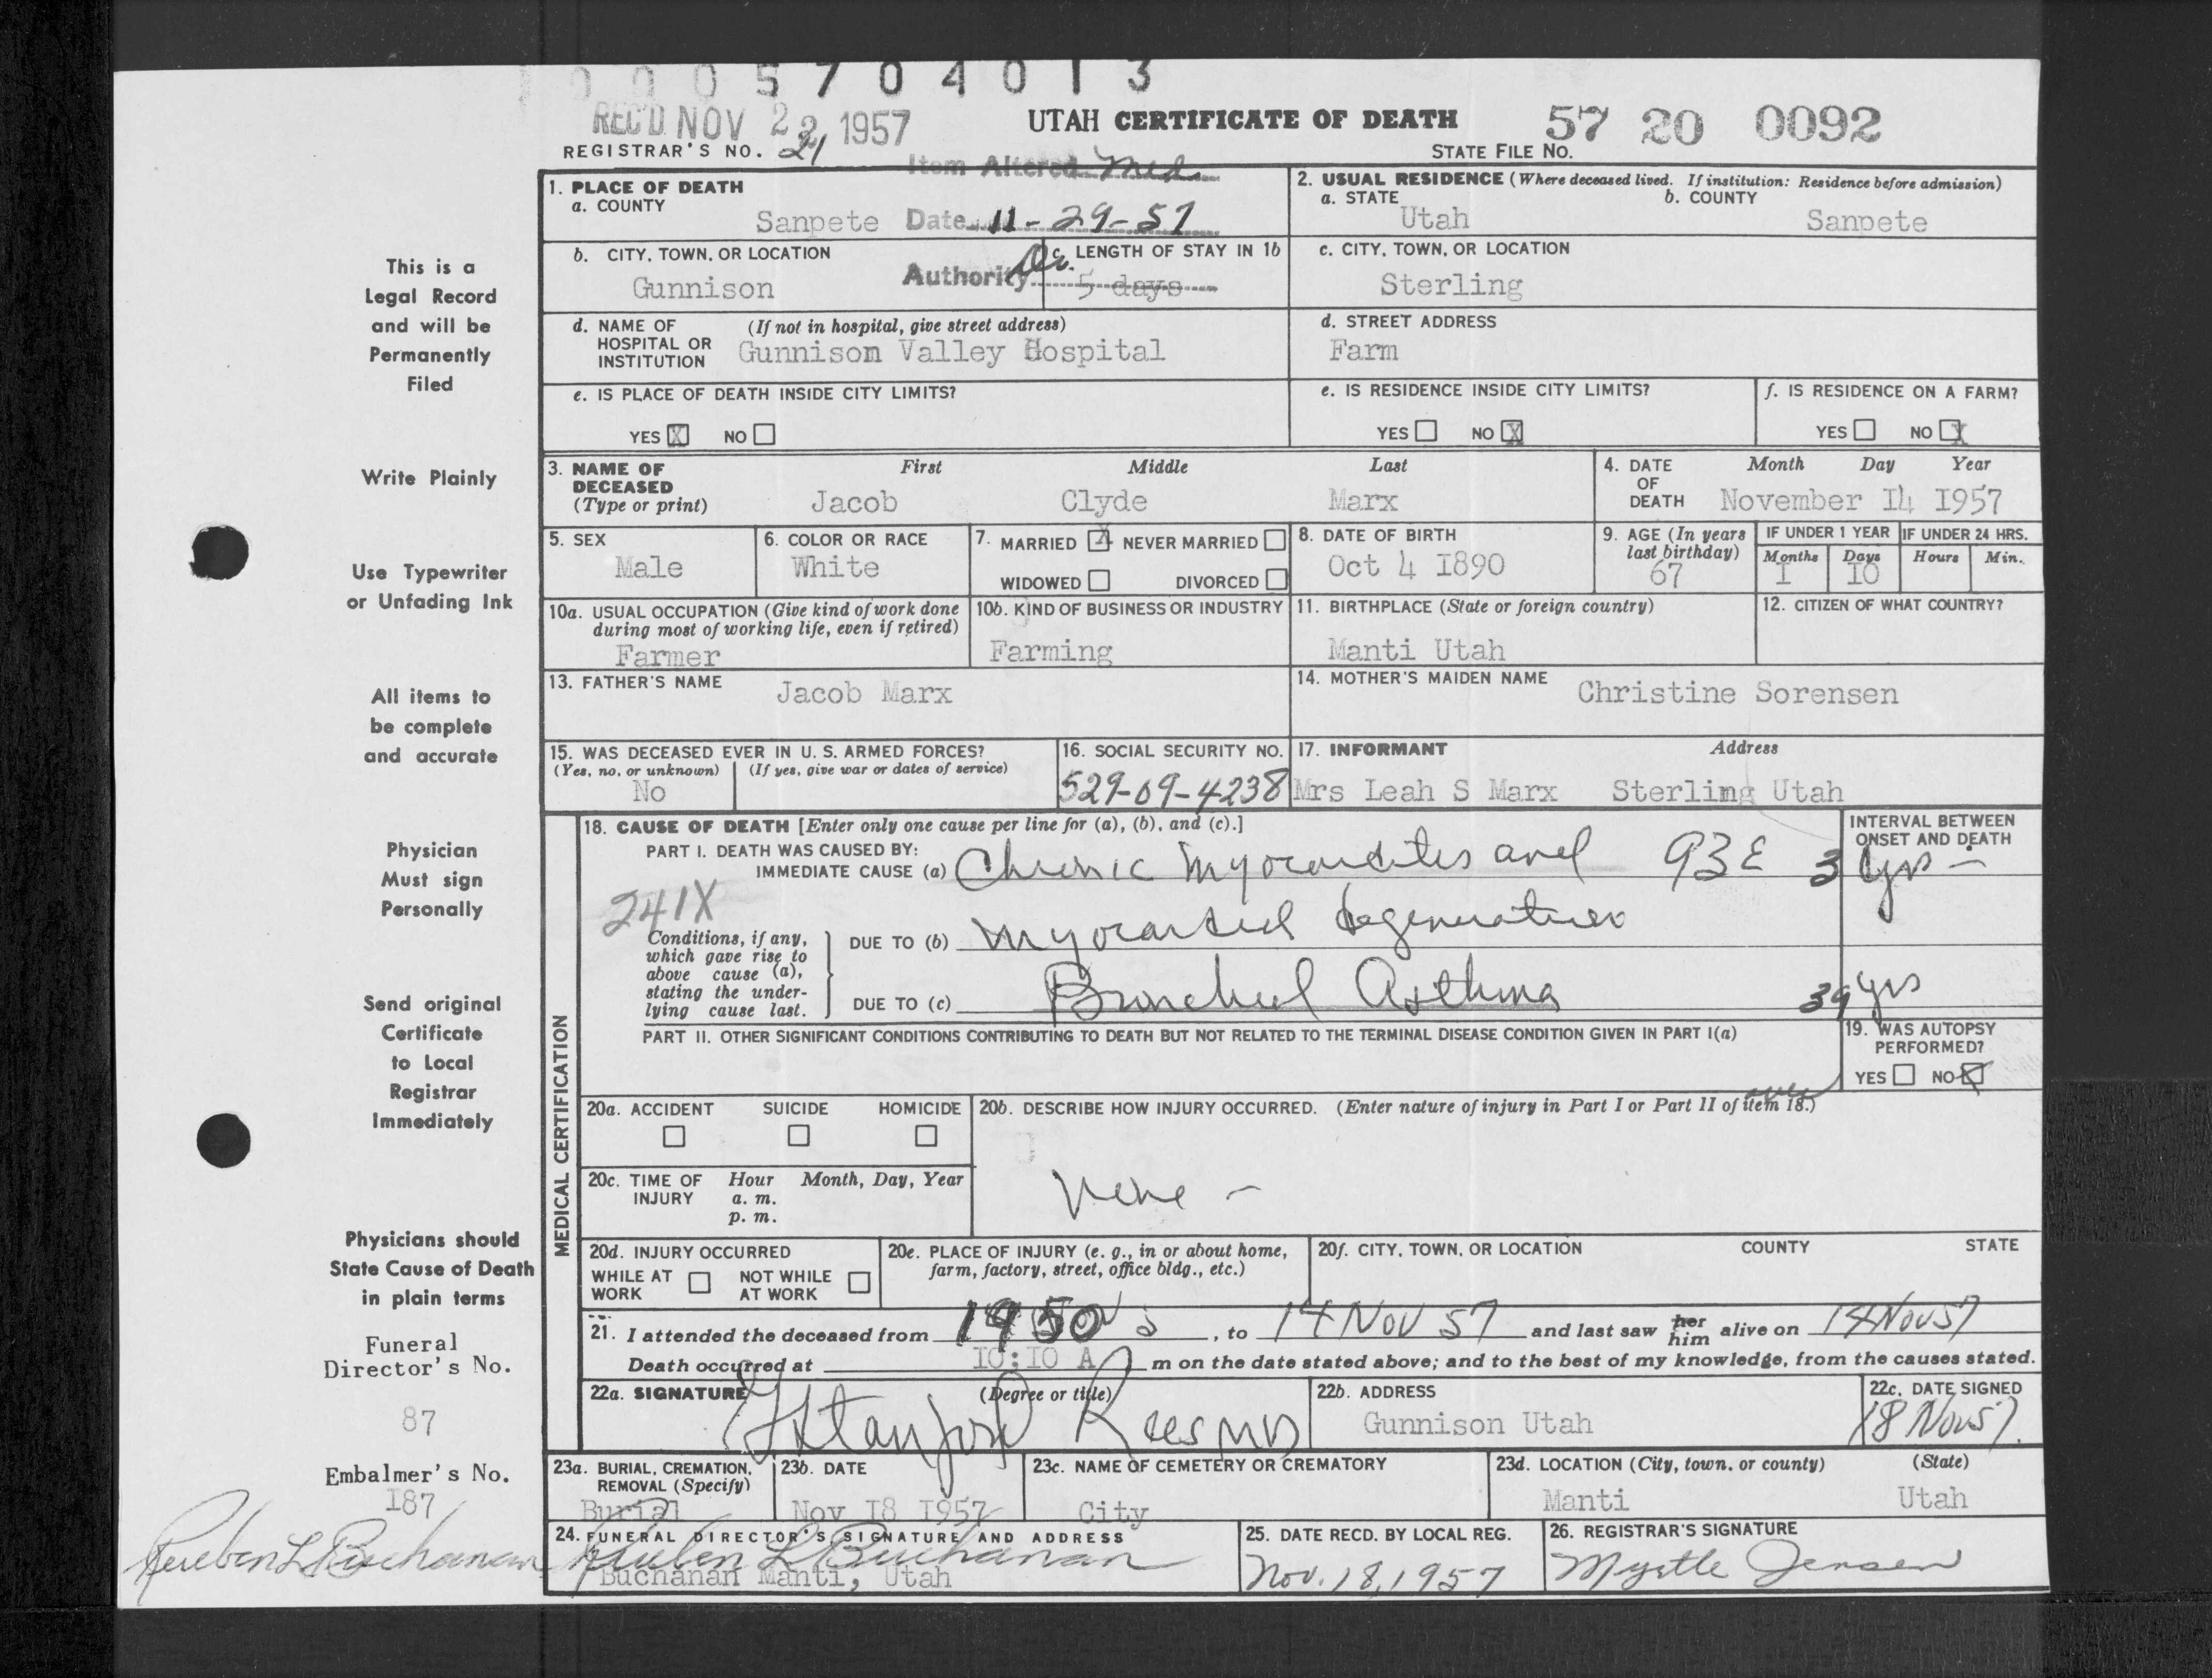 0 0 0 5 7 0 4 0 1 3
REC'D NOV 22 1957
UTAH CERTIFICATE OF DEATH
57 20 0092
REGISTRAR'S NO. 21
STATE FILE NO.
Item Altered Med
1. PLACE OF DEATH
a. COUNTY
Sanpete
Date 11-29-57
2. USUAL RESIDENCE (Where deceased lived. If institution: Residence before admission)
a. STATE
Utah
b. COUNTY
Sanpete
b. CITY, TOWN, OR LOCATION
Gunnison
Authority Dr.
c. LENGTH OF STAY IN 1b
5 days
c. CITY, TOWN, OR LOCATION
Sterling
d. NAME OF HOSPITAL OR INSTITUTION
(If not in hospital, give street address)
Gunnison Valley Hospital
d. STREET ADDRESS
Farm
e. IS PLACE OF DEATH INSIDE CITY LIMITS?
YES X NO
e. IS RESIDENCE INSIDE CITY LIMITS?
YES NO X
f. IS RESIDENCE ON A FARM?
YES NO X
3. NAME OF DECEASED
(Type or print)
First Middle Last
Jacob Clyde Marx
4. DATE OF DEATH
Month Day Year
November I4 I957
5. SEX
Male
6. COLOR OR RACE
White
7. MARRIED X NEVER MARRIED
WIDOWED DIVORCED
8. DATE OF BIRTH
Oct 4 I890
9. AGE (In years last birthday)
67
IF UNDER 1 YEAR
Months Days
I IO
IF UNDER 24 HRS.
Hours Min.
10a. USUAL OCCUPATION (Give kind of work done during most of working life, even if retired)
Farmer
10b. KIND OF BUSINESS OR INDUSTRY
Farming
11. BIRTHPLACE (State or foreign country)
Manti Utah
12. CITIZEN OF WHAT COUNTRY?
13. FATHER'S NAME
Jacob Marx
14. MOTHER'S MAIDEN NAME
Christine Sorensen
15. WAS DECEASED EVER IN U. S. ARMED FORCES?
(Yes, no, or unknown) (If yes, give war or dates of service)
No
16. SOCIAL SECURITY NO.
529-09-4238
17. INFORMANT Address
Mrs Leah S Marx Sterling Utah
MEDICAL CERTIFICATION
18. CAUSE OF DEATH [Enter only one cause per line for (a), (b), and (c).]
PART I. DEATH WAS CAUSED BY:
IMMEDIATE CAUSE (a) Chronic Myocarditis and 93E
INTERVAL BETWEEN ONSET AND DEATH
3 yrs -
241X
Conditions, if any, which gave rise to above cause (a), stating the underlying cause last.
DUE TO (b) Myocardial degeneration
DUE TO (c) Bronchial Asthma 39 yrs
PART II. OTHER SIGNIFICANT CONDITIONS CONTRIBUTING TO DEATH BUT NOT RELATED TO THE TERMINAL DISEASE CONDITION GIVEN IN PART I(a)
19. WAS AUTOPSY PERFORMED?
YES NO X
20a. ACCIDENT SUICIDE HOMICIDE
20b. DESCRIBE HOW INJURY OCCURRED. (Enter nature of injury in Part I or Part II of item 18.)
20c. TIME OF INJURY
Hour Month, Day, Year
a. m.
p. m.
None -
20d. INJURY OCCURRED
WHILE AT WORK NOT WHILE AT WORK
20e. PLACE OF INJURY (e. g., in or about home, farm, factory, street, office bldg., etc.)
20f. CITY, TOWN, OR LOCATION COUNTY STATE
21. I attended the deceased from 1950 , to 14 Nov 57 and last saw her him alive on 14 Nov 57
Death occurred at IO:IO A m on the date stated above; and to the best of my knowledge, from the causes stated.
22a. SIGNATURE (Degree or title)
Stanford Rees MD
22b. ADDRESS
Gunnison Utah
22c. DATE SIGNED
18 Nov 57.
23a. BURIAL, CREMATION, REMOVAL (Specify)
Burial
23b. DATE
Nov I8 I957
23c. NAME OF CEMETERY OR CREMATORY
City
23d. LOCATION (City, town, or county) (State)
Manti Utah
24. FUNERAL DIRECTOR'S SIGNATURE AND ADDRESS
Reuben L Buchanan
Buchanan Manti, Utah
25. DATE RECD. BY LOCAL REG.
Nov. 18, 1957
26. REGISTRAR'S SIGNATURE
Myrtle Jensen
This is a
Legal Record
and will be
Permanently
Filed
Write Plainly
Use Typewriter
or Unfading Ink
All items to
be complete
and accurate
Physician
Must sign
Personally
Send original
Certificate
to Local
Registrar
Immediately
Physicians should
State Cause of Death
in plain terms
Funeral
Director's No.
87
Embalmer's No.
I87
Reuben L Buchanan